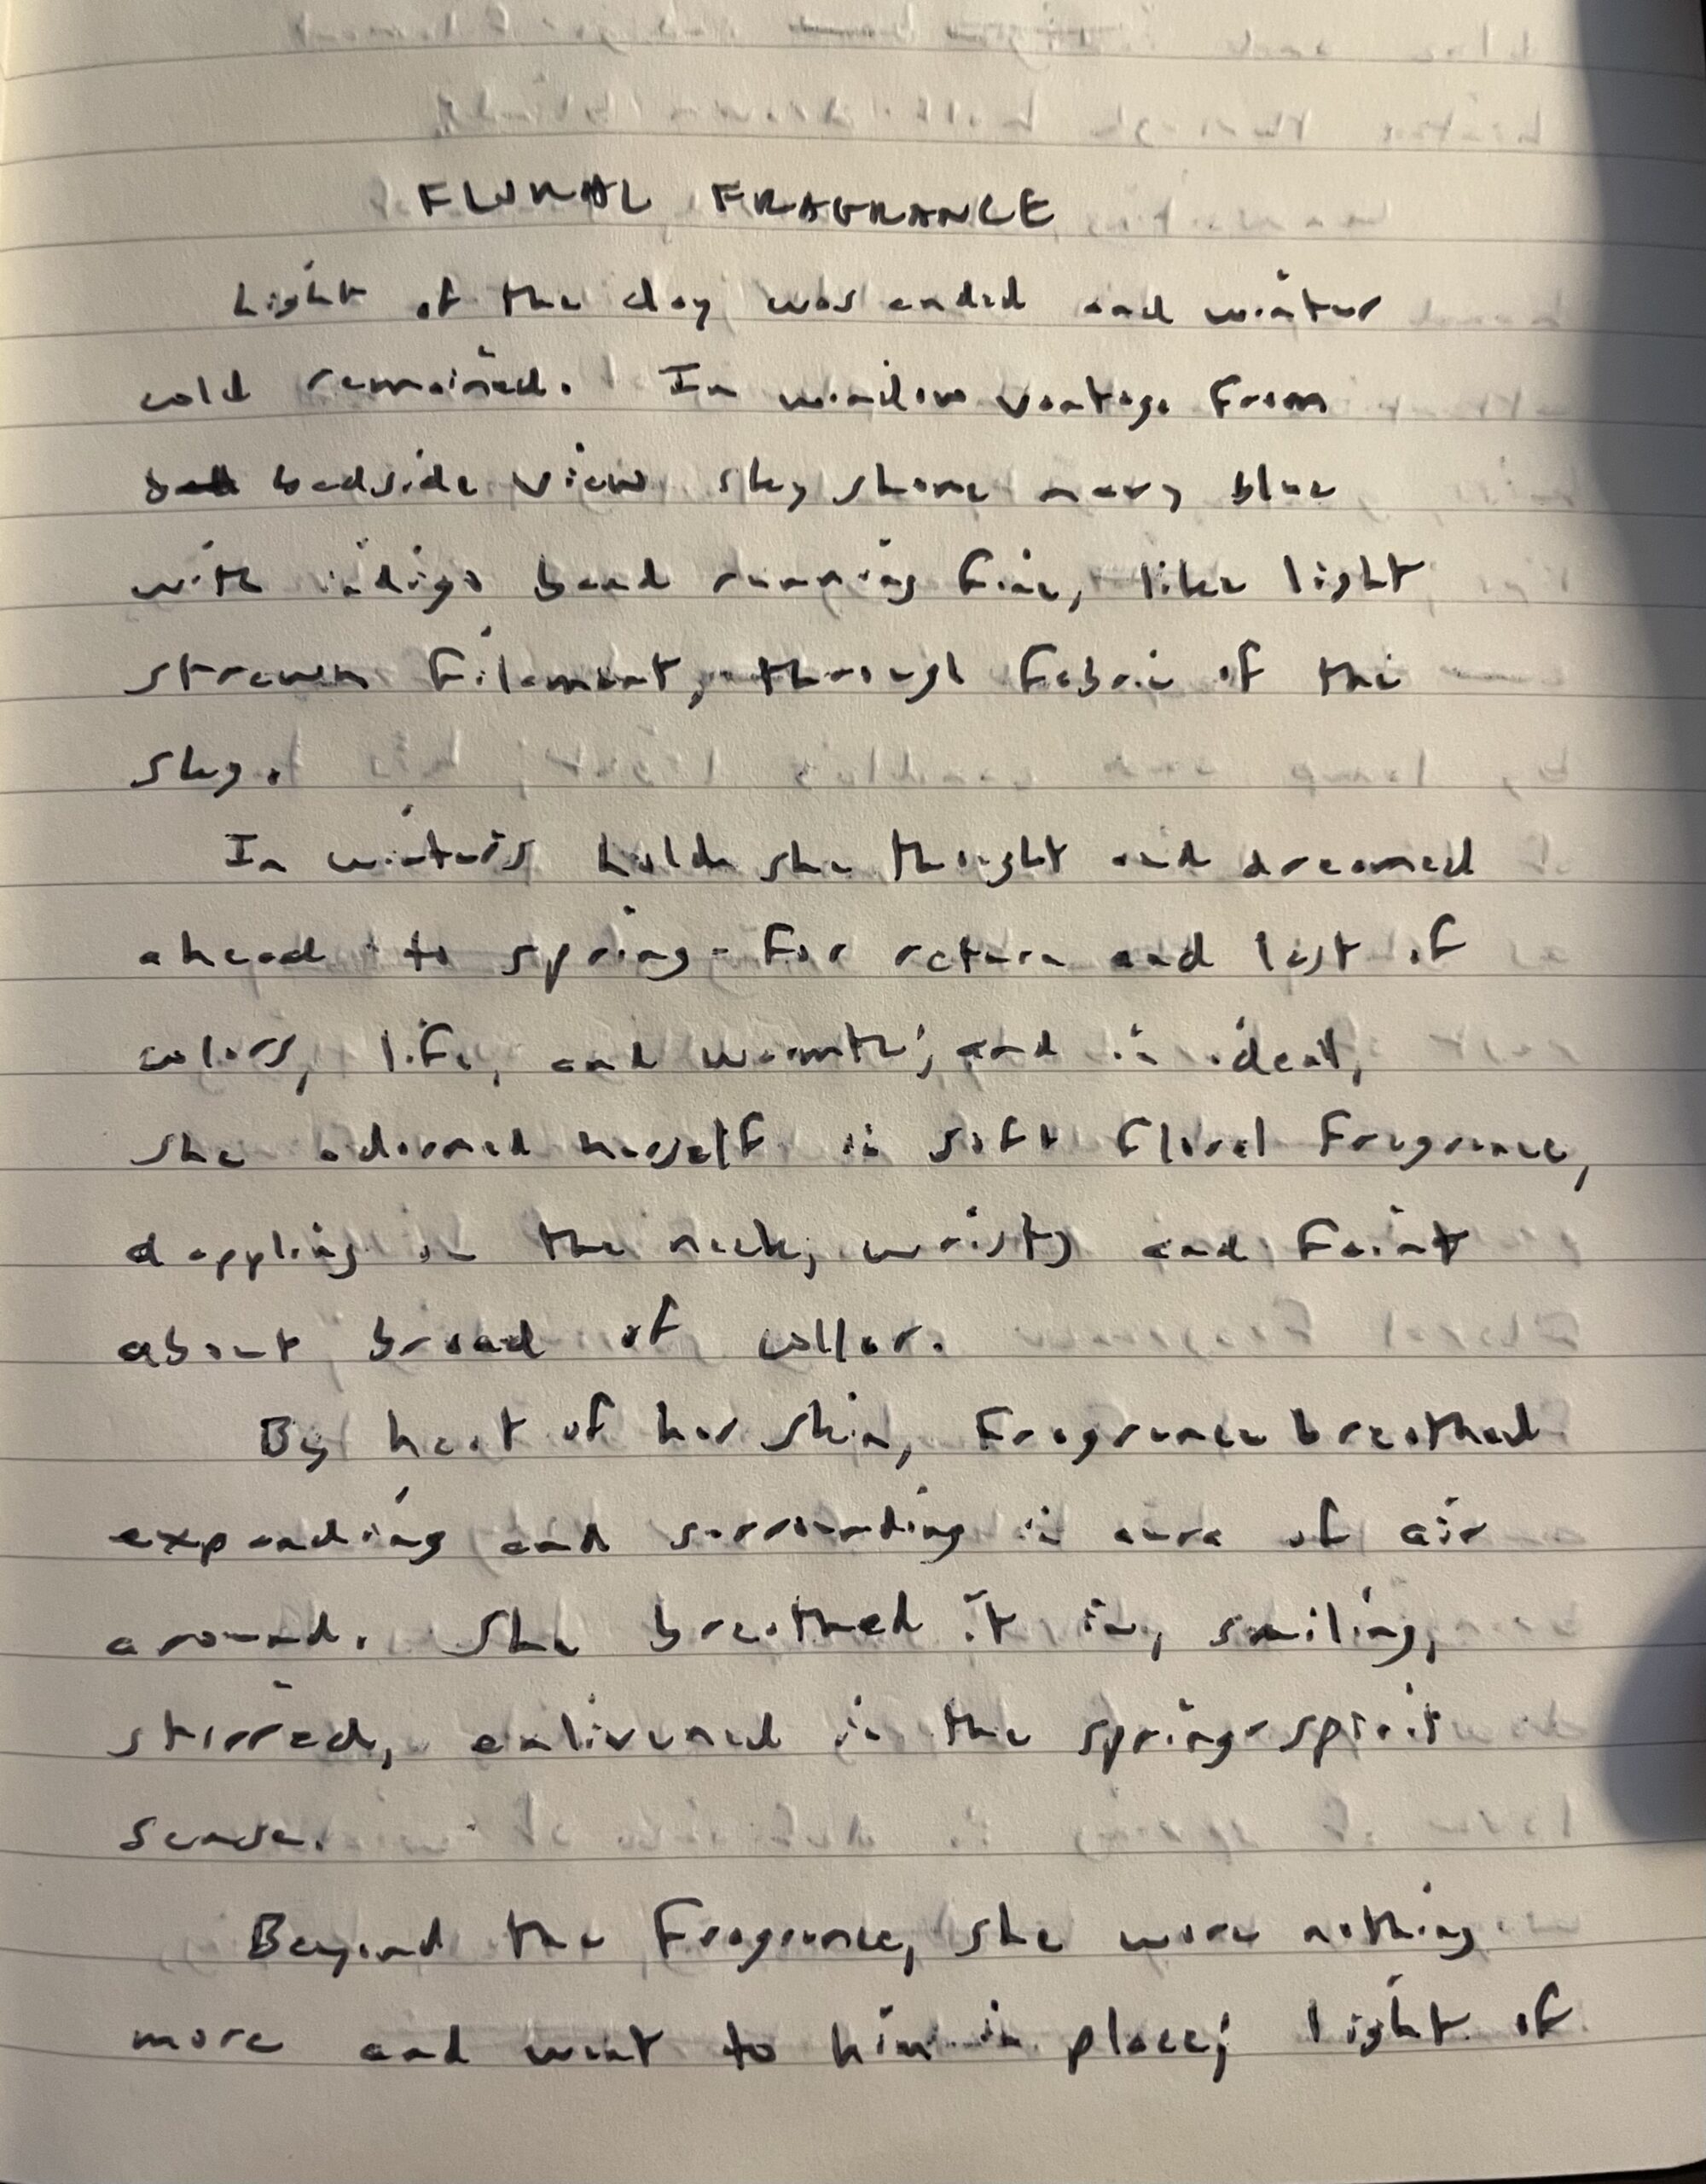 FLORAL FRAGRANCE
Light of the day was ended and winter
cold remained. In window vantage from
bedside view sky shone navy blue
with indigo band running fine, like light
strewn filament, through fabric of the
sky.
In winter's hold she thought and dreamed
ahead to spring - for return and lust of
colors, life, and warmth; and in ideal,
she adorned herself in soft floral fragrance,
dappling on the neck, wrists and faint
about broad of collar.
By heat of her skin, fragrance breathed
expanding and surrounding in aura of air
around. She breathed it in, smiling,
stirred, enlivened in the spring-spirit
sense.
Beyond the fragrance, she wore nothing
more and went to him in place; light of